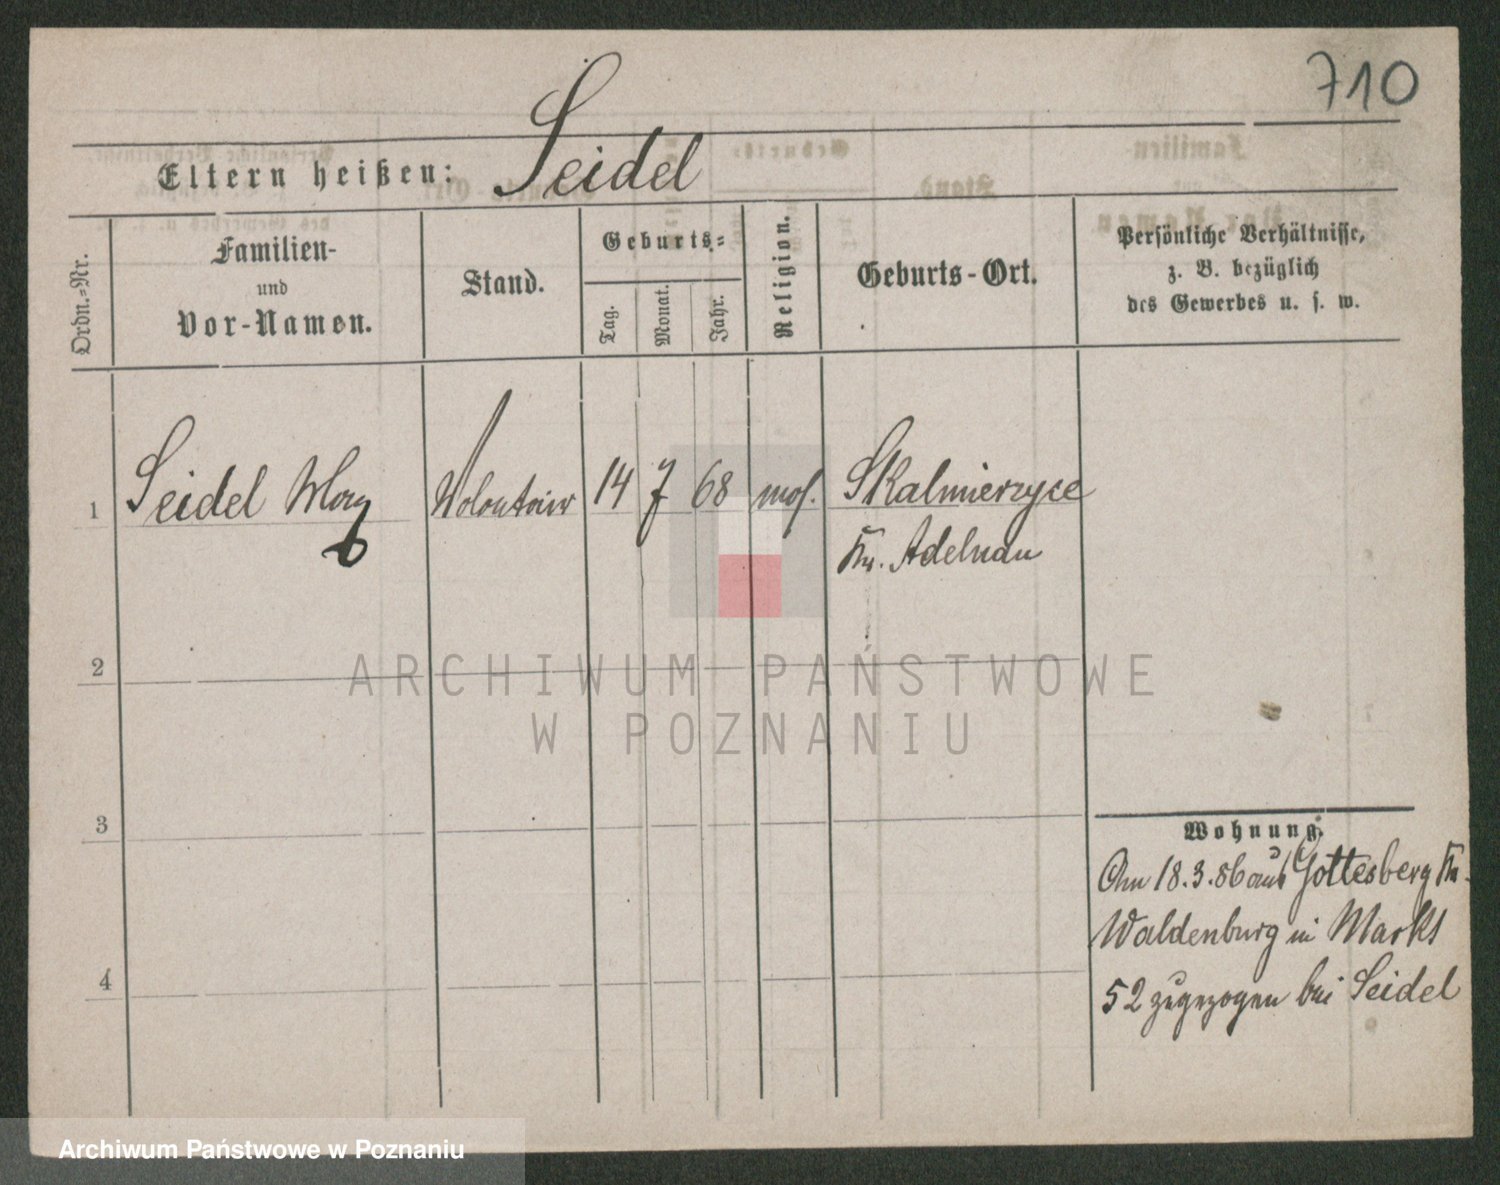 710
Eltern heißen: Seidel
Ordn.-Nr.
Familien-
und
Vor-Namen.
Stand.
Geburts-
Tag.
Monat.
Jahr.
Religion.
Geburts-Ort.
Persönliche Verhältnisse,
z. B. bezüglich
des Gewerbes u. s. w.
1 Seidel Max Volontair 14 7 68 mos. Skalmierzyce
Kr. Adelnau
2
3
4
Wohnung.
Am 18.3.86 aus Gottesberg Kr.
Waldenburg in Markt
52 zugezogen bei Seidel
ARCHIWUM PAŃSTWOWE
W POZNANIU
Archiwum Państwowe w Poznaniu